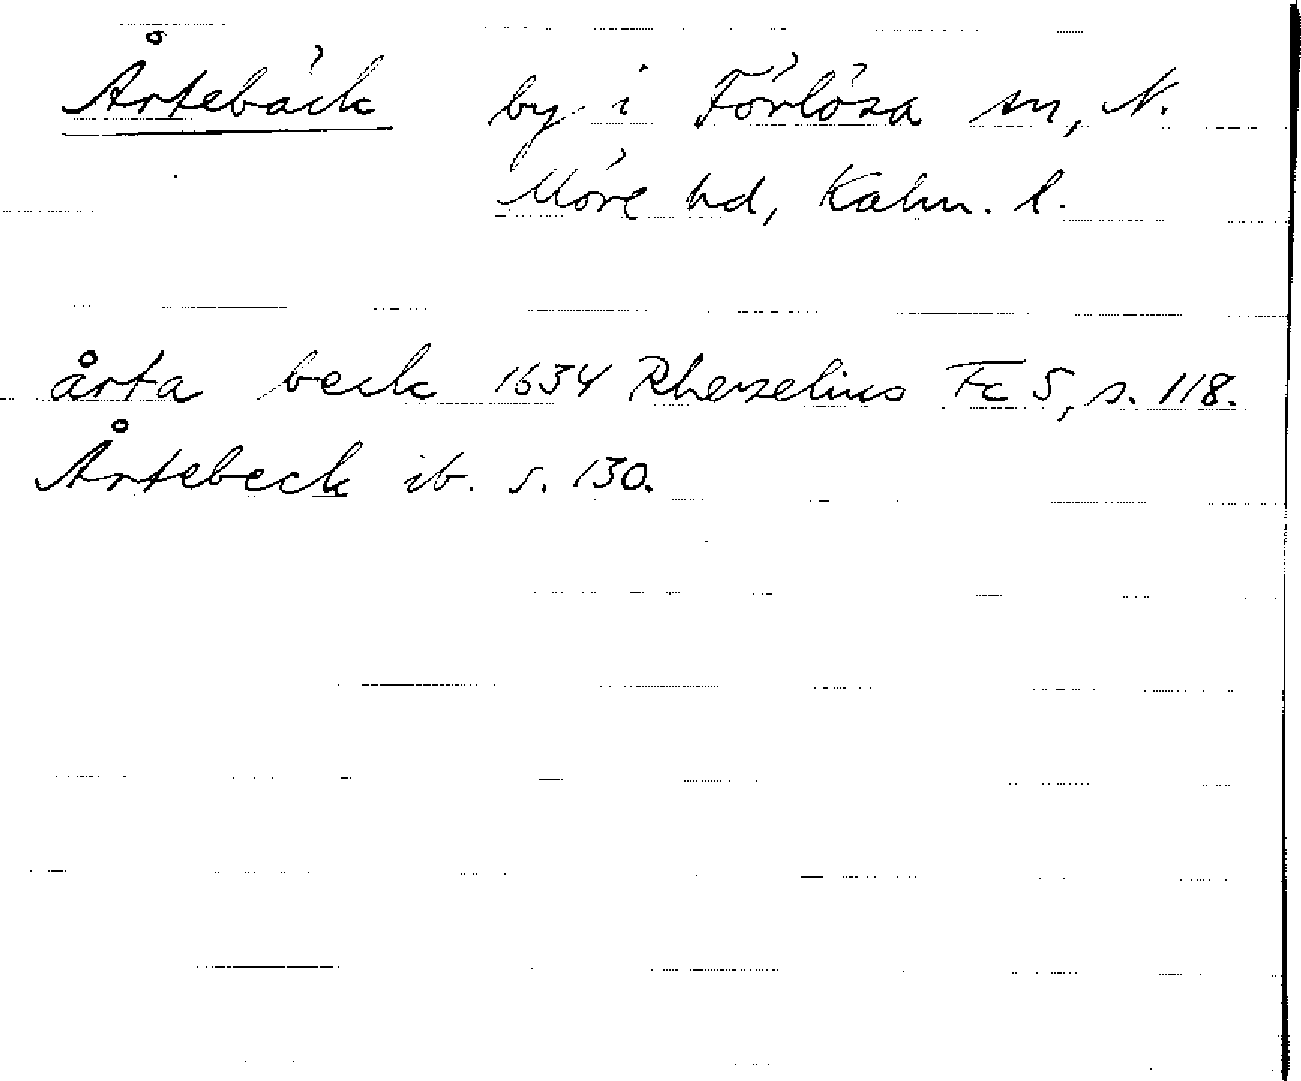 Årtebäck by i Förlösa sn, N.
Möre hd, Kalm. l.
årta beck 1634 Rhezelius Fc 5, s. 118.
Årtebeck ib. s. 130.